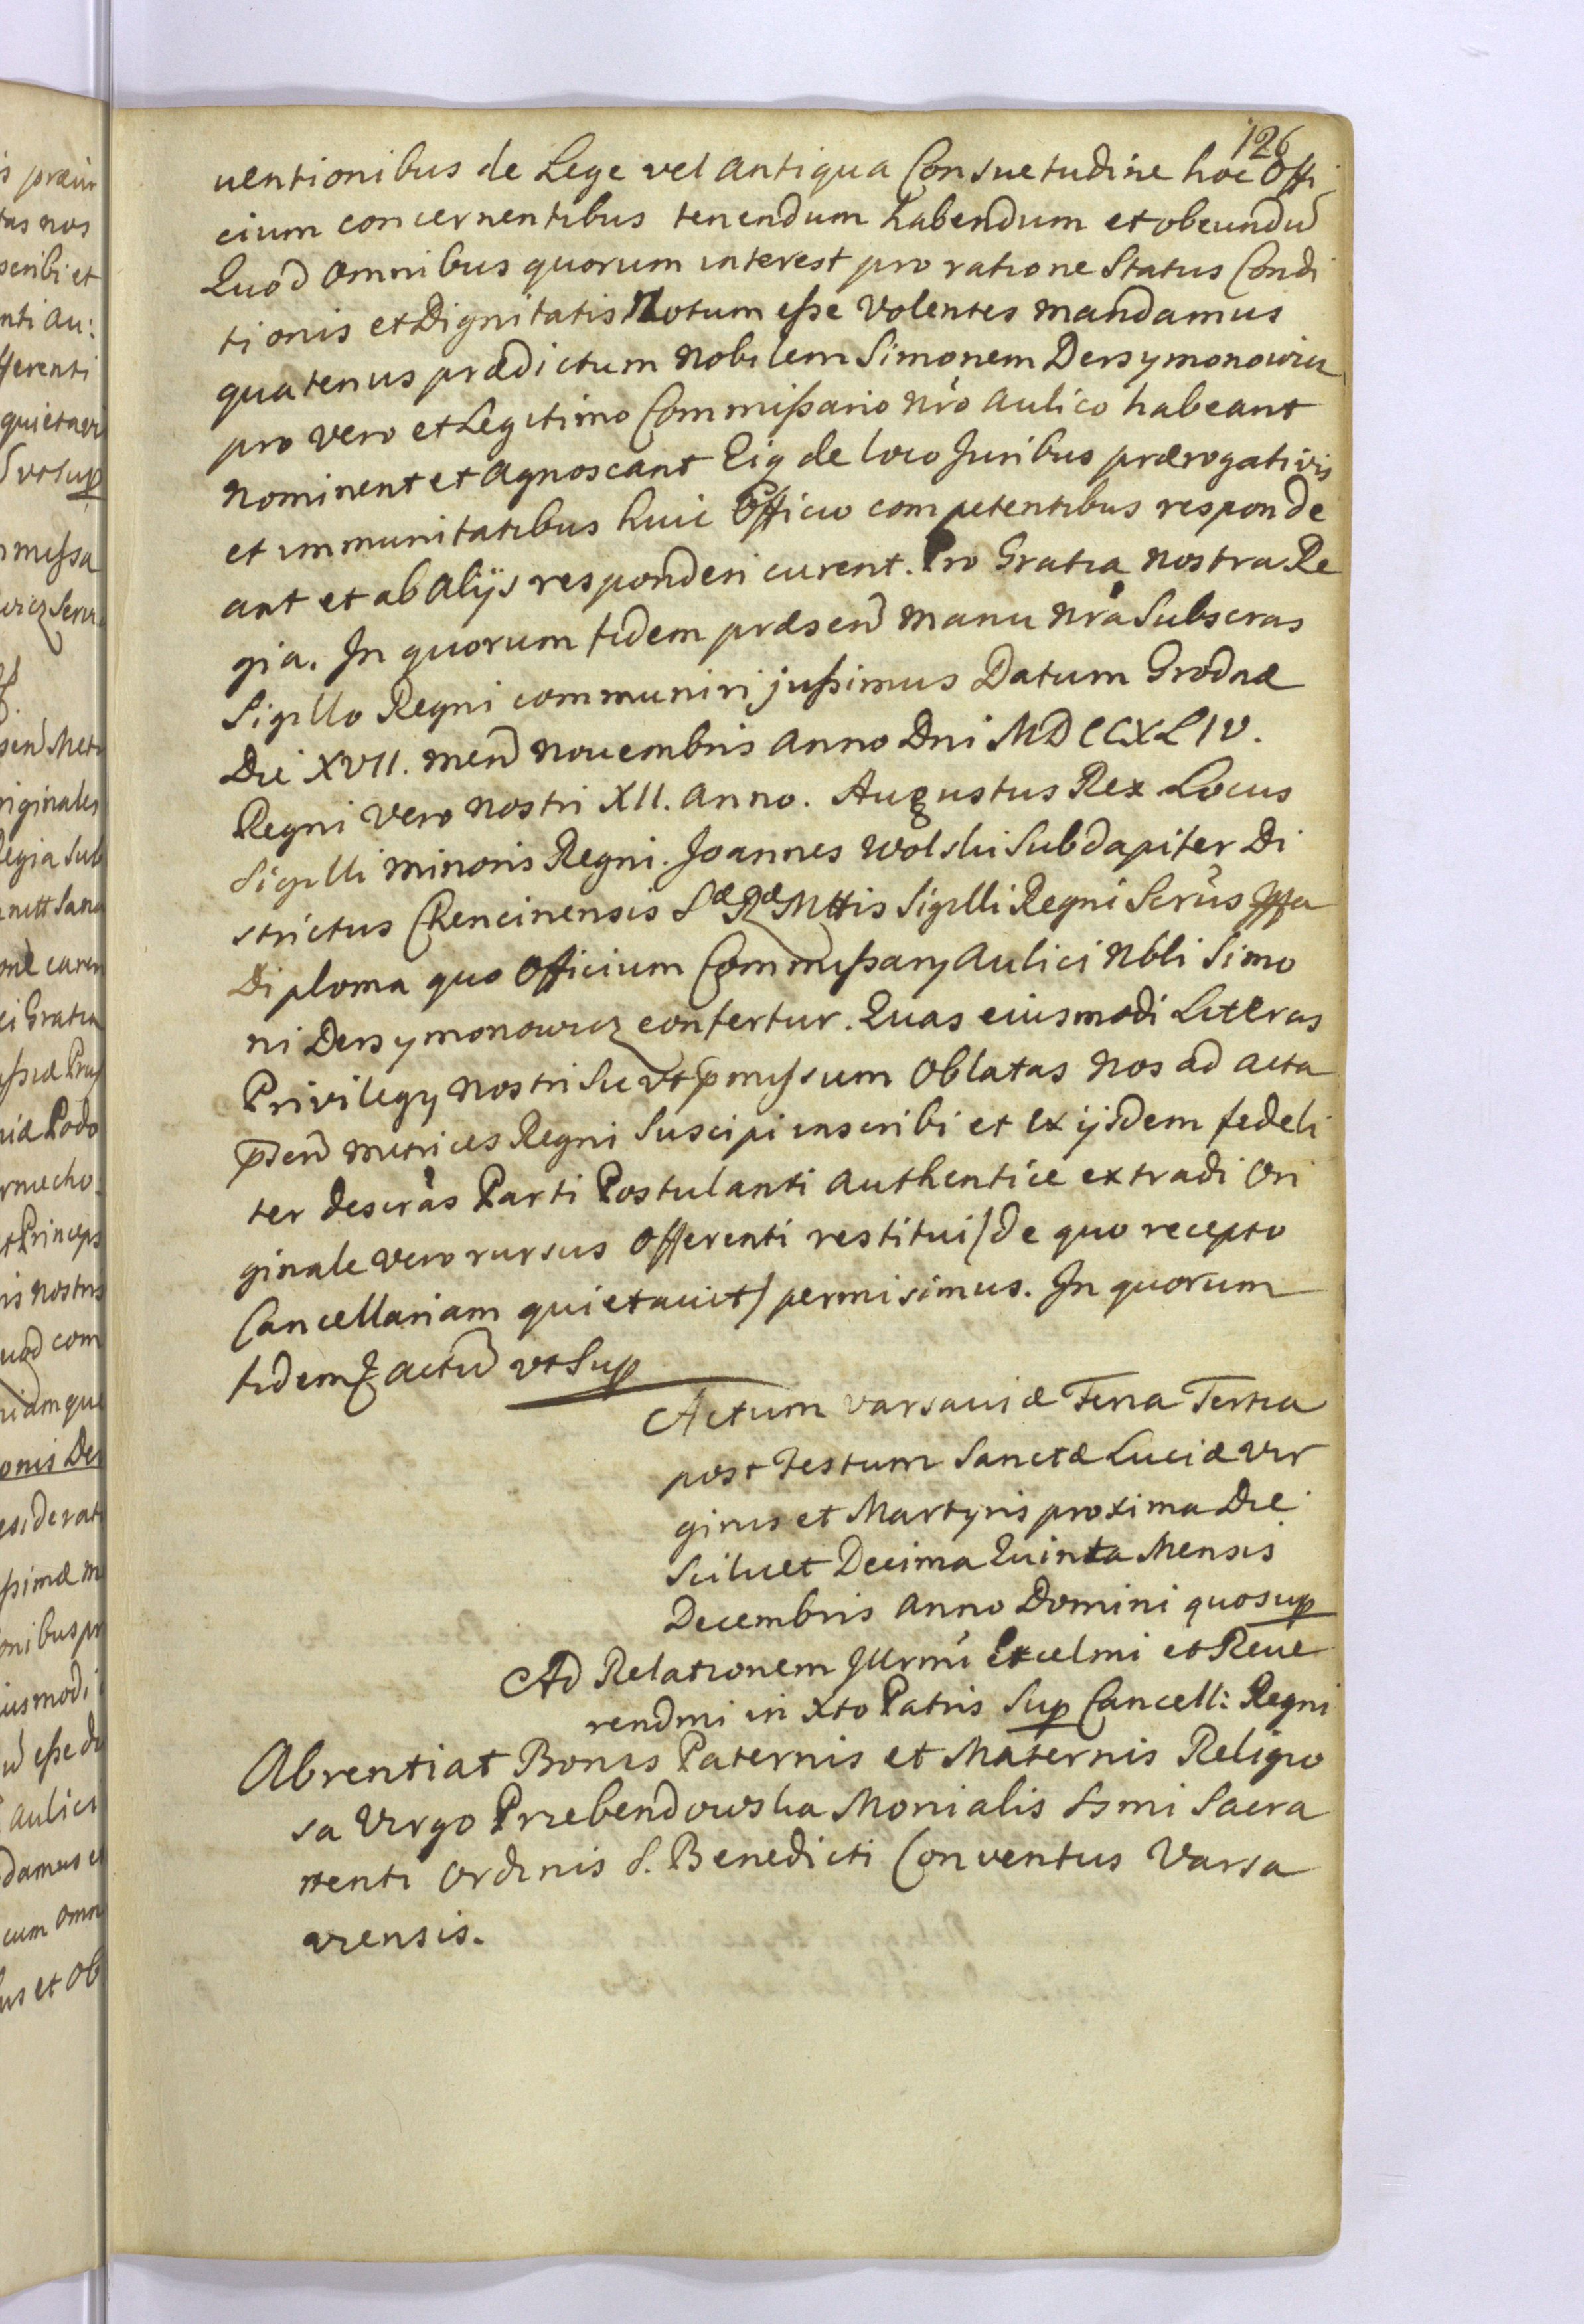 126
uentionibus de Lege vel antiqua Consuetudine hoc Offi
cium concernentibus tenendum habendum et obeundū
Quod omnibus quorum interest pro ratione Status Condi
tionis et Dignitatis Notum esse volentes mandamus
quatenus prædictum Nobilem Simonem Dersymonowicz
pro vero et Legitimo Commissario nrō Aulico habeant
nominent et agnoscant Eiq de loco Juribus prærogativis
et immunitatibus huic Officio competentibus responde
ant et ab alijs responderi curent. Pro Gratia nostra Re
gia. In quorum fidem præsen̄ manu nrā Subscras
Sigillo Regni communiri jussimus Datum Grodnæ
Die XVII. men̄ Novembris Anno Dni MDCCXLIV.
Regni vero nostri XII. anno. Augustus Rex Locus
Sigilli minoris Regni. Joannes Wolski Subdapifer Di
strictus Chencinensis Sæ Ræ Mttis Sigilli Regni Scrūs
Diploma quo Officium Commissarij Aulici Nbli Simo
ni Dersymonowicz confertur. Quas eiusmodi Literas
Privilegij nostri Sic vt p̄missum Oblatas nos ad acta
p̄sen̄ metrices Regni Suscipi inscribi et ex ijsdem fideli
ter descrās Parti Postulanti authentice extradi Ori
ginale vero rursus Offerenti restitui /de quo recepto
Cancellariam quietavit/ permisimus. In quorum
fidem & actū vt Sup
Actum Varsaviæ Feria Tertia
post Festum Sanctæ Luciæ Vir
ginis et Martyris proxima Die
Scilicet Decima Quinta Mensis
Decembris Anno Domini quo sup
Ad Relationem Illrmi Excelmi et Reue
rendmi in Xto Patris Sup Cancell: Regni
Abrentiat Bonis Paternis et Maternis Religio
sa Virgo Przebendowska Monialis Ssmi Sacra
menti Ordinis S. Benedicti Conventus Varsa
viensis.